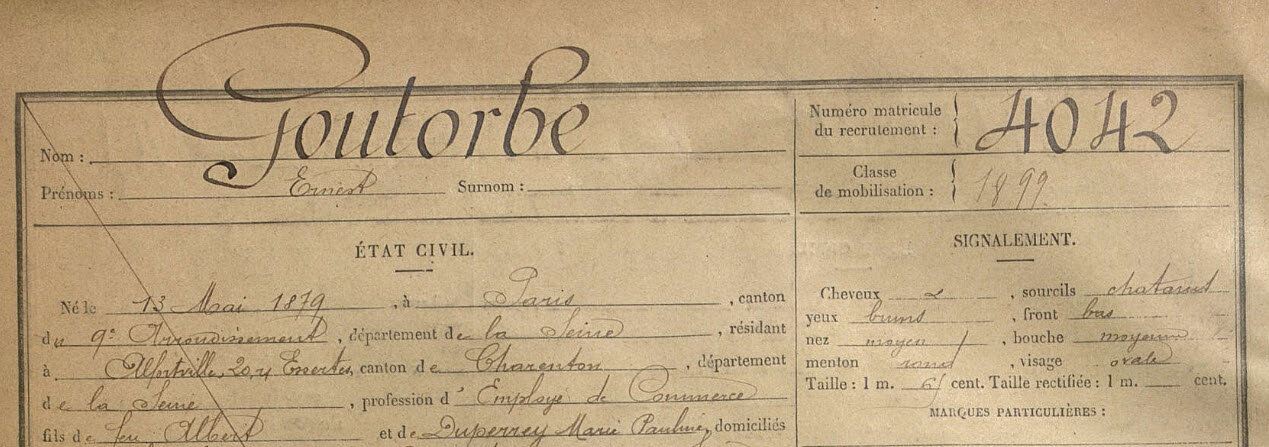 Goutorbe
Nom :
Prénoms : Ernest Surnom :
Numéro matricule
du recrutement : 4042
Classe
de mobilisation : 1899
ÉTAT CIVIL.
Né le 13 Mai 1879, à Paris, canton
du 9e Arrondissement, département de la Seine, résidant
à Alfortville, 20, Essertes, canton de Charenton, département
de la Seine, profession d' Employé de Commerce
fils de feu Albert et de Duperrey Marie Pauline, domiciliés
SIGNALEMENT.
Cheveux &, sourcils chatains
yeux bruns, front bas
nez moyen, bouche moyenne
menton rond, visage ovale
Taille : 1 m. cent. Taille rectifiée : 1 m. cent.
MARQUES PARTICULIÈRES :